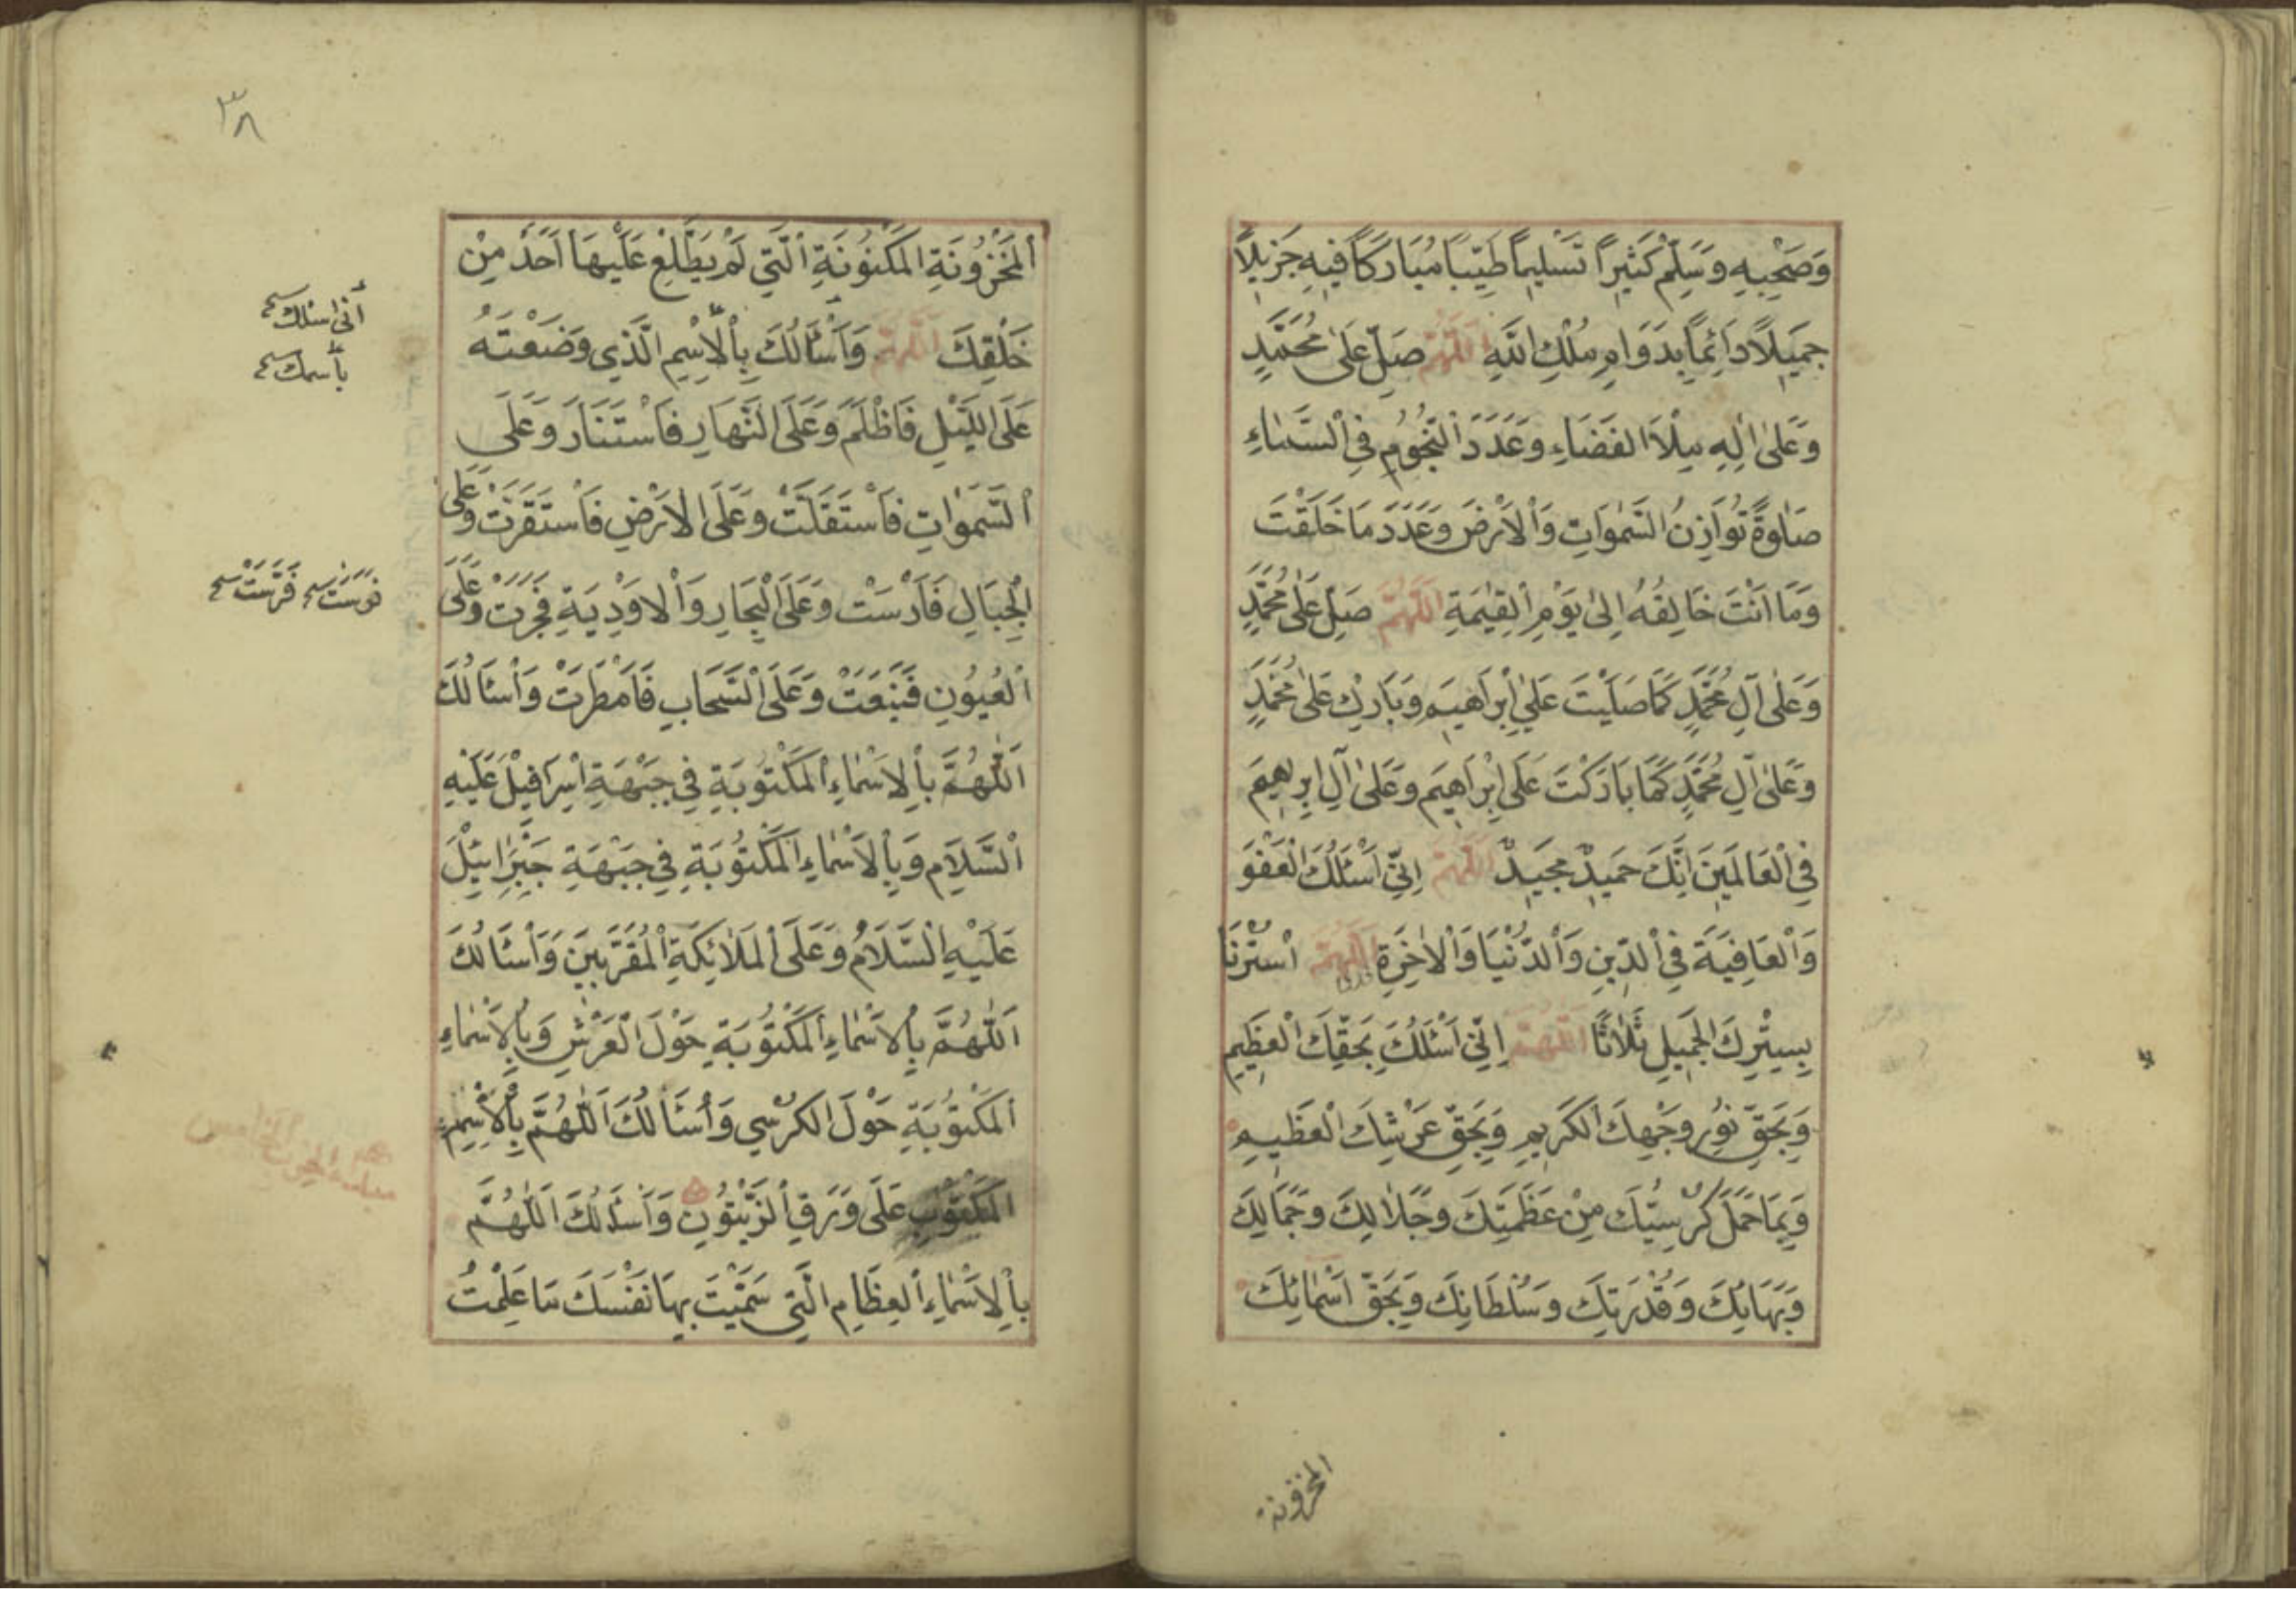 وَصَحْبِهِ وَسَلِّمْ كَثِيرًا تَسْلِيمًا طَيِّبًا مُبَارَكًا فِيهِ جَزِيلًا
جَمِيلًا دَائِمًا بِدَوَامِ مُلْكِ اللَّهِ اَللّٰهُمَّ صَلِّ عَلَى مُحَمَّدٍ
وَعَلَى اٰلِهِ مِلْاَ الفَضَاءِ وَعَدَدَ النُّجُومِ فِي السَّمَاءِ
صَلٰوةً تُوَازِنُ السَّمٰوَاتِ وَالْاَرْضَ وَعَدَدَ مَا خَلَقْتَ
وَمَا اَنْتَ خَالِقُهُ اِلَى يَوْمِ الْقِيٰمَةِ اَللّٰهُمَّ صَلِّ عَلَى مُحَمَّدٍ
وَعَلَى اٰلِ مُحَمَّدٍ كَمَا صَلَّيْتَ عَلَى اِبْرَاهِيمَ وَبَارِكْ عَلَى مُحَمَّدٍ
وَعَلَى اٰلِ مُحَمَّدٍ كَمَا بَارَكْتَ عَلَى اِبْرَاهِيمَ وَعَلَى اٰلِ اِبْرٰهِيمَ
فِي الْعَالَمِينَ اِنَّكَ حَمِيدٌ مَجِيدٌ اَللّٰهُمَّ اِنِّي اَسْئَلُكَ الْعَفْوَ
وَالْعَافِيَةَ فِي الدِّينِ وَالدُّنْيَا وَالْاٰخِرَةِ اَللّٰهُمَّ اسْتُرْنَا
بِسِتْرِكَ الْجَمِيلِ ثَلَاثًا اَللّٰهُمَّ اِنِّي اَسْئَلُكَ بِحَقِّكَ الْعَظِيمِ
وَبِحَقِّ نُورِ وَجْهِكَ الْكَرِيمِ وَبِحَقِّ عَرْشِكَ الْعَظِيمِ
وَبِمَا حَمَلَ كُرْسِيُّكَ مِنْ عَظَمَتِكَ وَجَلَالِكَ وَجَمَالِكَ
وَبَهَائِكَ وَقُدْرَتِكَ وَسُلْطَانِكَ وَبِحَقِّ اَسْمَائِكَ
المخزونة
٣٨
الْمَخْزُونَةِ الْمَكْنُونَةِ الَّتِي لَمْ يَطَّلِعْ عَلَيْهَا اَحَدٌ مِنْ
خَلْقِكَ اَللّٰهُمَّ وَاَسْأَلُكَ بِالْاِسْمِ الَّذِي وَضَعْتَهُ
عَلَى اللَّيْلِ فَاَظْلَمَ وَعَلَى النَّهَارِ فَاسْتَنَارَ وَعَلَى
السَّمٰوَاتِ فَاسْتَقَلَّتْ وَعَلَى الْاَرْضِ فَاسْتَقَرَّتْ وَعَلَى
الْجِبَالِ فَاَرْسَتْ وَعَلَى الْبِحَارِ وَالْاَوْدِيَةِ فَجَرَتْ وَعَلَى
الْعُيُونِ فَنَبَعَتْ وَعَلَى السَّحَابِ فَاَمْطَرَتْ وَاَسْاَلُكَ
اَللّٰهُمَّ بِالْاَسْمَاءِ الْمَكْتُوبَةِ فِي جَبْهَةِ اِسْرَافِيلَ عَلَيْهِ
السَّلَامُ وَبِالْاَسْمَاءِ الْمَكْتُوبَةِ فِي جَبْهَةِ جَبْرَائِيلَ
عَلَيْهِ السَّلَامُ وَعَلَى الْمَلَائِكَةِ الْمُقَرَّبِينَ وَاَسْاَلُكَ
اَللّٰهُمَّ بِالْاَسْمَاءِ الْمَكْتُوبَةِ حَوْلَ الْعَرْشِ وَبِالْاَسْمَاءِ
الْمَكْتُوبَةِ حَوْلَ الْكُرْسِي وَاَسْاَلُكَ اَللّٰهُمَّ بِالْاِسْمِ
الْمَكْتُوبِ عَلَى وَرَقِ الزَّيْتُونِ وَاَسْاَلُكَ اَللّٰهُمَّ
بِالْاَسْمَاءِ الْعِظَامِ الَّتِي سَمَّيْتَ بِهَا نَفْسَكَ مَا عَلِمْتُ
أنى اسئلك
باسمك
فرست